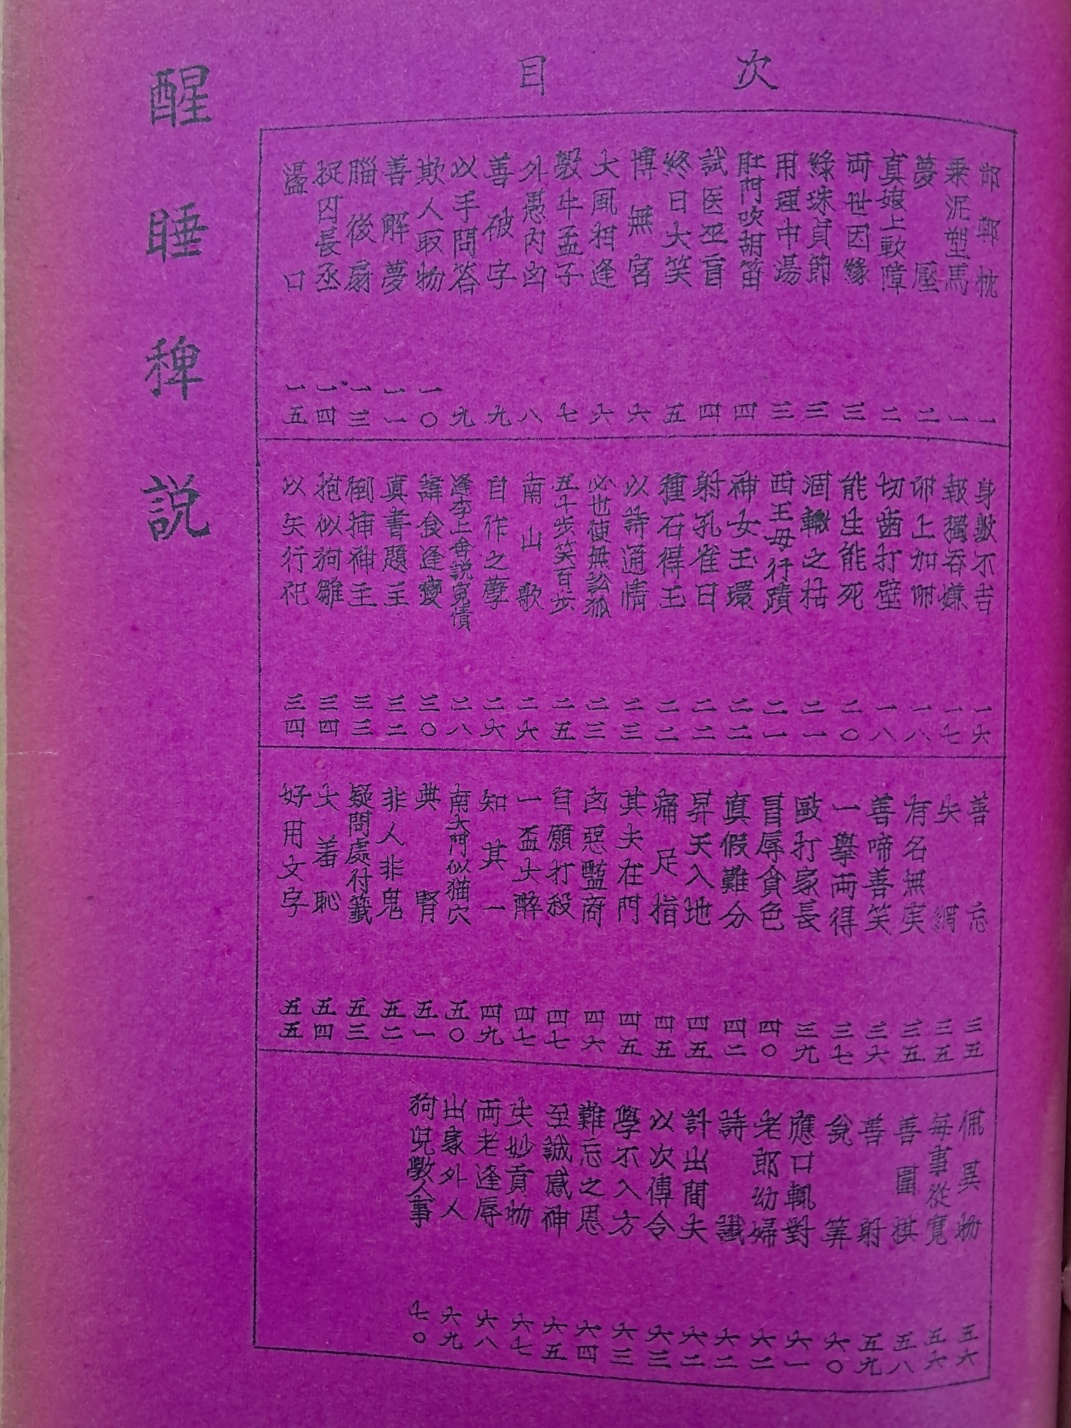 醒睡稗説
目次
邯鄲枕 一
乗泥塑馬 一
夢壓 二
真娘上軟障 二
両世因縁 三
緑珠貞節 三
用理中湯 三
肚阿吹胡笛 四
試医巫盲 四
終日大笑 五
博無宮 六
大風相逢 六
觳牛孟子 七
外愚内凶 八
善破字 九
以手問答 九
欺人取物 一〇
善解夢 一一
腦後扇 一三
捉囚長丞 一四
盪口 一五
身數不吉 一六
報獨吞嫌 一七
卵上加卵 一八
切齒打壁 一八
能生能死 二〇
涸轍之枯 二一
西王母行蹟 二一
神女玉環 二二
射孔雀目 二二
種石得玉 二二
以詩通情 二三
必也使無訟狐 二三
五十步笑百步 二五
南山歌 二六
自作之孽 二六
逢李上舍説寃債 二八
諱食逢變 三〇
真書題主 三二
倒捧神主 三三
抱似狗雛 三四
以矢行祀 三四
善忘 三五
失網 三五
有名無実 三五
善啼善笑 三六
一擧両得 三七
毆打家長 三九
冒辱貪色 四〇
真假難分 四二
昇天入地 四五
痛足指 四五
其夫在門 四五
凶惡鹽商 四六
自願打殺 四七
一盃大醉 四七
知其一 四九
南大門似猫穴 五〇
典腎 五一
非人非鬼 五二
疑問處付籤 五三
大羞恥 五四
好用文字 五五
佩異物 五六
每事從寬 五六
善圍棋 五八
善射 五九
銳筭 六〇
應口輒對 六一
老郎幼婦 六二
詩讖 六二
計出間夫 六二
以次傳令 六三
學不入方 六三
難忘之恩 六四
至誠感神 六五
失妙貢物 六七
両老逢辱 六八
出家外人 六九
狗説數人事 七〇